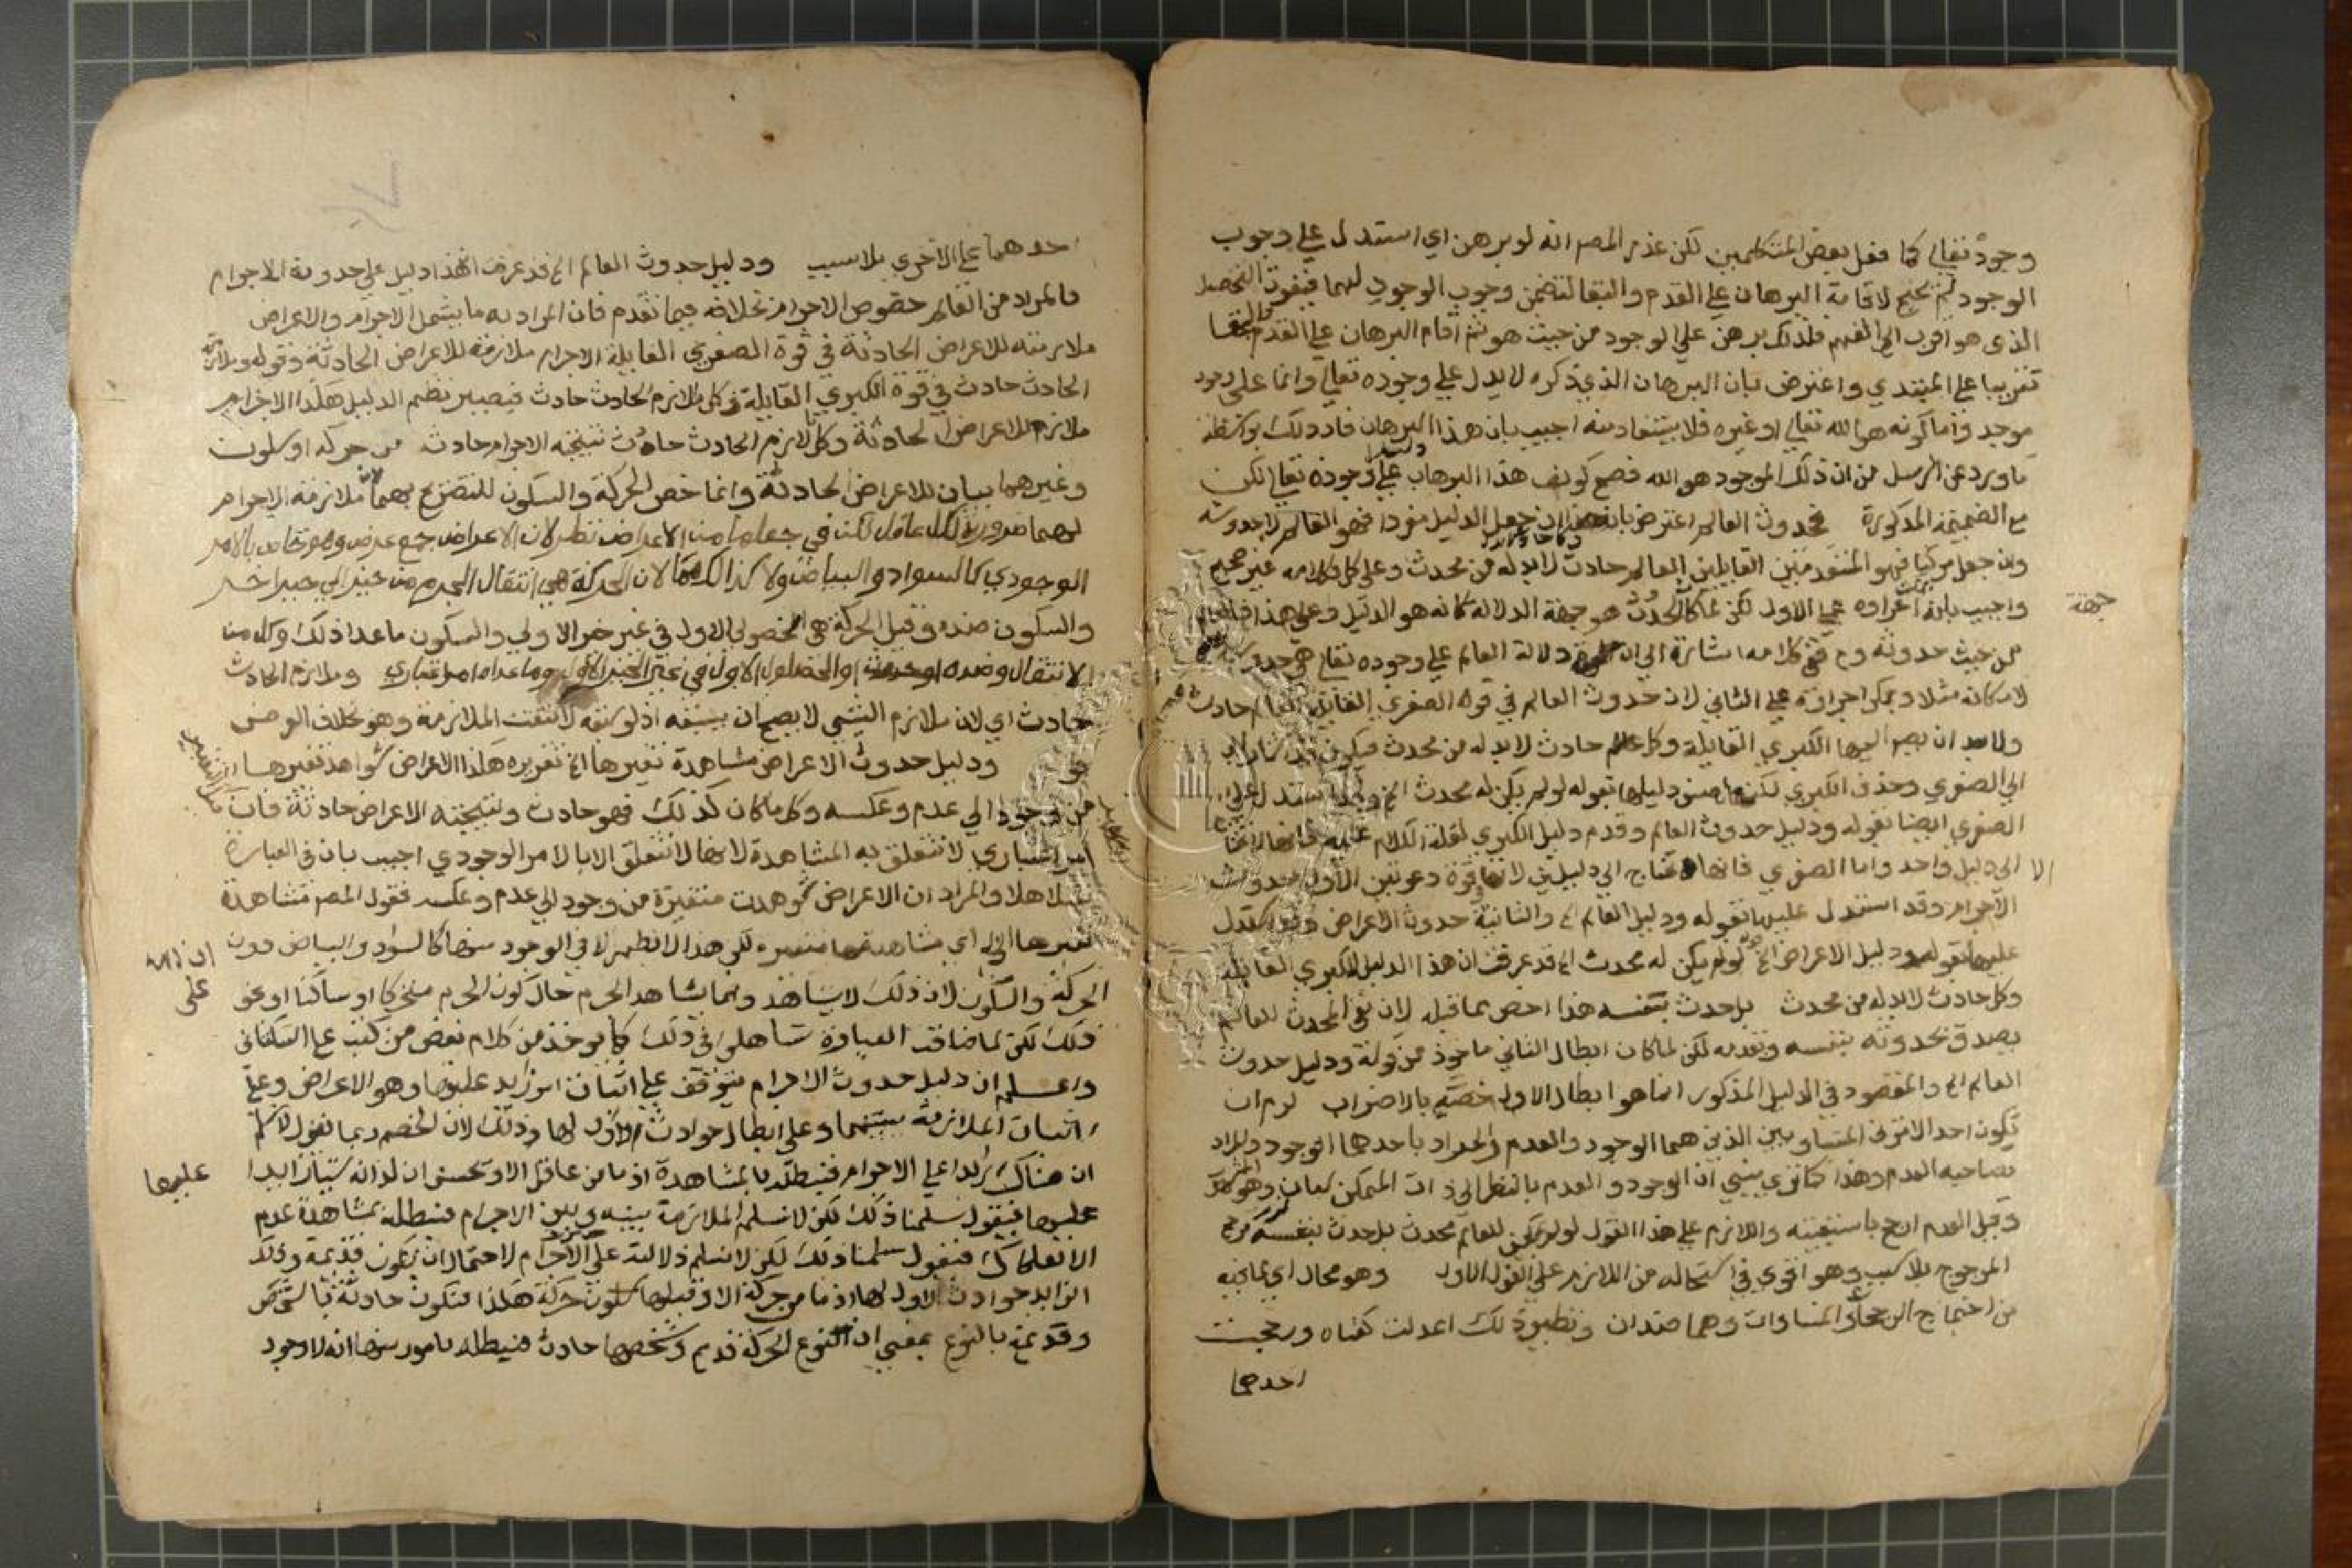 وجوده تعالى كما فعل بعض المتكلمين لكن عذر المصر انه لو برهن اي استدل علي وجوب
الوجود لم يحتج لاقامة البرهان علي القدم والبقا لتضمن وجوب الوجود لهما فيفوت التحصيل
الذي هو اقرب الي الفهم فلذلك برهن علي الوجود من حيث هو ثم اقام البرهان علي القدم والبقا
تقريبا علي المبتدي واعترض بان البرهان الذي ذكره لا يدل علي وجوده تعالي وانما علي وجود
موجد واما كونه هو الله تعالي او غيره فلا يستفاد منه اجيب بان هذا البرهان فاد ذلك بواسطة
ما ورد عن الرسل من ان ذلك الموجود هو الله فصح كون هذا البرهان علي وجوده تعالي لكن
مع الضميمة المذكورة فحدوث العالم اعترض بانه ان جعل الدليل مفردا فهو العالم لا حدوثه
وان جعل مركبا فهو المتقدمتين القايلتين العالم حادث وكل حادث لابد له من محدث وعلي كل فكلامه غير صحيح
واجيب بانه اجراه علي الاول لكن لما كان الحدوث هو جهة الدلالة كانه هو الدليل وعلي هذا
جهة
من حيث حدوثه وح ففي كلامه اشارة الي ان جهة دلالة العالم علي وجوده تعالي هي حدوثه
لا مكانه مثلا ويمكن اجراؤه علي الثاني لان حدوث العالم في قوة الصغري القايلة العالم حادث
ولابد ان يضم اليها الكبري القايلة وكل حادث لابد له من محدث فيكون قد اشار
الي الصغري وحذف الكبري لكن ضمن دليلها بقوله لو لم يكن له محدث الخ وقد استدل علي
الصغري ايضا بقوله ودليل حدوث العالم وقدم دليل الكبري لقلة الكلام عليه فانها لا تحتاج
الا الي دليل واحد واما الصغري فانها تحتاج الي دليلين لانها في قوة دعوتين الاولي حدوث
الاجرام وقد استدل عليها بقوله ودليل العالم الخ والثانية حدوث الاعراض وقد استدل
عليها بقوله ودليل الاعراض الخ لو لم يكن له محدث الخ قد عرفت ان هذا الدليل للكبري القايلة
وكل حادث لابد له من محدث بل حدث بنفسه هذا اخص مما قبله لان نفي المحدث للعالم
يصدق بحدوثه بنفسه وبقدمه لكن لما كان ابطال الثاني ماخوذ من قوله ودليل حدوث
العالم الخ والمقصود في الدليل المذكور انما هو ابطال الاول خصه بالاضراب لزم ان
يكون احد الامرين المتساويين الذين هما الوجود والعدم والمراد باحدهما الوجود والمراد
بصاحبه العدم وهذا كما تري مبني ان الوجود والعدم بالنظر الي ذات الممكن سيان وهو
وقيل العدم ارجح باسبقيته واللازم علي هذا القول لو لم يكن للعالم محدث بل حدث بنفسه ترجيح
المرجوح بلا سبب وهو اقوي في استحاله من اللازم علي القول الاول وهو محال اي لما فيه
من اجتماع الرجحان والمساوات وهما ضدان ونظير ذلك اعدلت كفتاه ورجحت
احدهما
احدهما علي الاخري بلا سبب ودليل حدوث العالم الخ قد عرفت ان هذا دليل علي حدوث الاجرام
فالمراد من العالم خصوص الاجرام بخلافه فيما تقدم فان المراد به ما يشمل الاجرام والاعراض
ملازمته للاعراض الحادثة في قوة الصغري القايلة الاجرام ملازمة للاعراض الحادثة وقوله وملازم
الحادث حادث في قوة الكبري القايلة وكل ملازم الحادث حادث فيصير نظم الدليل هكذا الاجرام
ملازم للاعراض الحادثة وكل ملازم الحادث حادث نتيجته الاجرام حادثة من حركه او سكون
وغيرهما بيان للاعراض الحادثة وانما خص الحركة والسكون للتصريح بهما لان ملازمة الاجرام
لهما ضرورية لكل عاقل لكن في جعلهما من الاعراض نظر لان الاعراض جمع عرض وهو خاص بالامر
الوجودي كالسواد والبياض ولا كذلك هما لان الحركة هي انتقال الجرم من حيز الي حيز اخر
والسكون ضده وقيل الحركة هي الحصول الاول في غير حيز الاولي والسكون ما عدا ذلك وكل من
الانتقال وضده او الحصول الاول في غير الحيز الاول وما عداه امر اعتباري وملازم الحادث
حادث اي لان ملازم الشيي لا يصح ان يسبقه اذ لو سبقه لانتفت الملازمة وهو خلاف الفرض
ودليل حدوث الاعراض مشاهدة تغيرها الخ تقريره هكذا الاعراض شوهد تغيرها
من وجود الي عدم وعكسه وكل ما كان كذلك فهو حادث ونتيجته الاعراض حادثة فان
امر اعتباري لا تتعلق به المشاهدة لانها لا تتعلق الا بالامر الوجودي اجيب بان في العبارة
تساهلا والمراد ان الاعراض شوهدت متغيرة من وجود الي عدم وعكسه فقول المصر مشاهدة
تغيرها الخ اي مشاهدتها متغيره لكن هذا لا يظهر الا في الوجود منها كالسواد والبياض دون
الحركة والسكون لان ذلك لا يشاهد وانما يشاهد الجرم حال كون الجرم متحركا او ساكنا او نحو
علي
ذلك لكن لما ضاقت العبارة تساهلوا في ذلك كما يوخذ من كلام بعض من كتب علي السكتاني
واعلم ان دليل حدوث الاجرام يتوقف علي اثبات امر زايد عليها وهو الاعراض وعلي
اثبات الملازمة بينهما وعلي ابطال حوادث لا اول لها وذلك لان الخصم ربما يقول لا نسلم
ان هناك زايدا علي الاجرام فنبطله بالمشاهدة اذ ما من عاقل الا ويحس ان لذاته شيا زايدا
عليها
عليها فيقول سلمنا ذلك لكن لا نسلم الملازمة بينه وبين الاجرام فنبطله بمشاهدة عدم
الانفكاك فيقول سلمنا ذلك لكن لا نسلم دلالته علي حدوث الاجرام لاحتمال ان تكون قديمة وذلك
الزايد حوادث لا اول لها اذ ما من حركة الا وقبلها حركة هكذا فتكون حادثة بالشخص
وقديمة بالنوع بمعني ان النوع الحركة قديم وشخصها حادث فنبطله بامور منها انه لا وجود